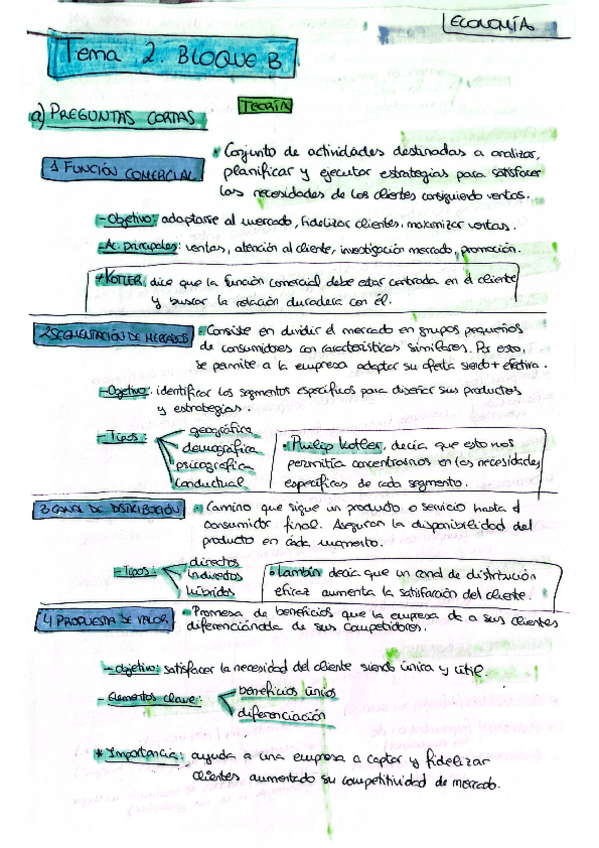 ECONOMÍA
Tema 2. BLOQUE B
TEORÍA
a) PREGUNTAS CORTAS
1 FUNCIÓN COMERCIAL
• Conjunto de actividades destinadas a analizar,
planificar y ejecutar estrategias para satisfacer
las necesidades de los clientes consiguiendo ventas.
- Objetivo: adaptarse al mercado, fidelizar clientes, maximizar ventas.
- Ac. principales: ventas, atención al cliente, investigación mercado, promoción.
* KOTLER, dice que la función comercial debe estar centrada en el cliente
y buscar la relación duradera con él.
2 SEGMENTACIÓN DE MERCADOS
• Consiste en dividir el mercado en grupos pequeños
de consumidores con características similares. Por esto,
se permite a la empresa adaptar su oferta siendo + efectiva.
- Ogetivo: identificar los segmentos específicos para diseñar sus productos
y estrategias.
- Tipos:
geográfica
demográfica
psicografica
conductual
• Philip Kotler, decía que esto nos
permitía concentrarnos en las necesidades
específicas de cada segmento.
3 CANAL DE DISTRIBUCIÓN
• Camino que sigue un producto o servicio hasta el
consumidor final. Aseguran la disponibilidad del
producto en cada momento.
- Tipos:
directos
indirectos
híbridos
• Lambin decía que un canal de distribución
eficaz aumenta la satisfacción del cliente.
4 PROPUESTA DE VALOR
• Promesa de beneficios que la empresa da a sus clientes
diferenciándola de sus competidores.
- objetivo: satisfacer la necesidad del cliente siendo única y útil.
- Elementos clave:
beneficios únicos
diferenciación
* Importancia: ayuda a una empresa a captar y fidelizar
clientes aumentado su competitividad de mercado.